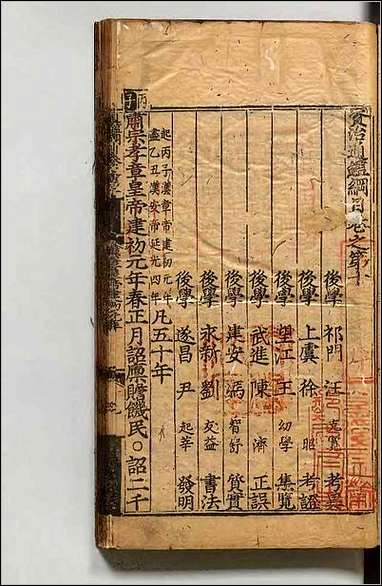 資治通鑑綱目卷之第十
後學 祁門 汪 克寬 考異
後學 上虞 徐 昭 考證
後學 望江 王 幼學 集覽
後學 武進 陳 濟 正誤
後學 建安 馮 智舒 質實
後學 永新 劉 友益 書法
後學 遂昌 尹 起莘 發明
起丙子漢章帝建初元年
盡乙丑漢安帝延光四年 凡五十年
丙子 肅宗孝章皇帝建初元年春正月詔稟贍饑民〇詔二千